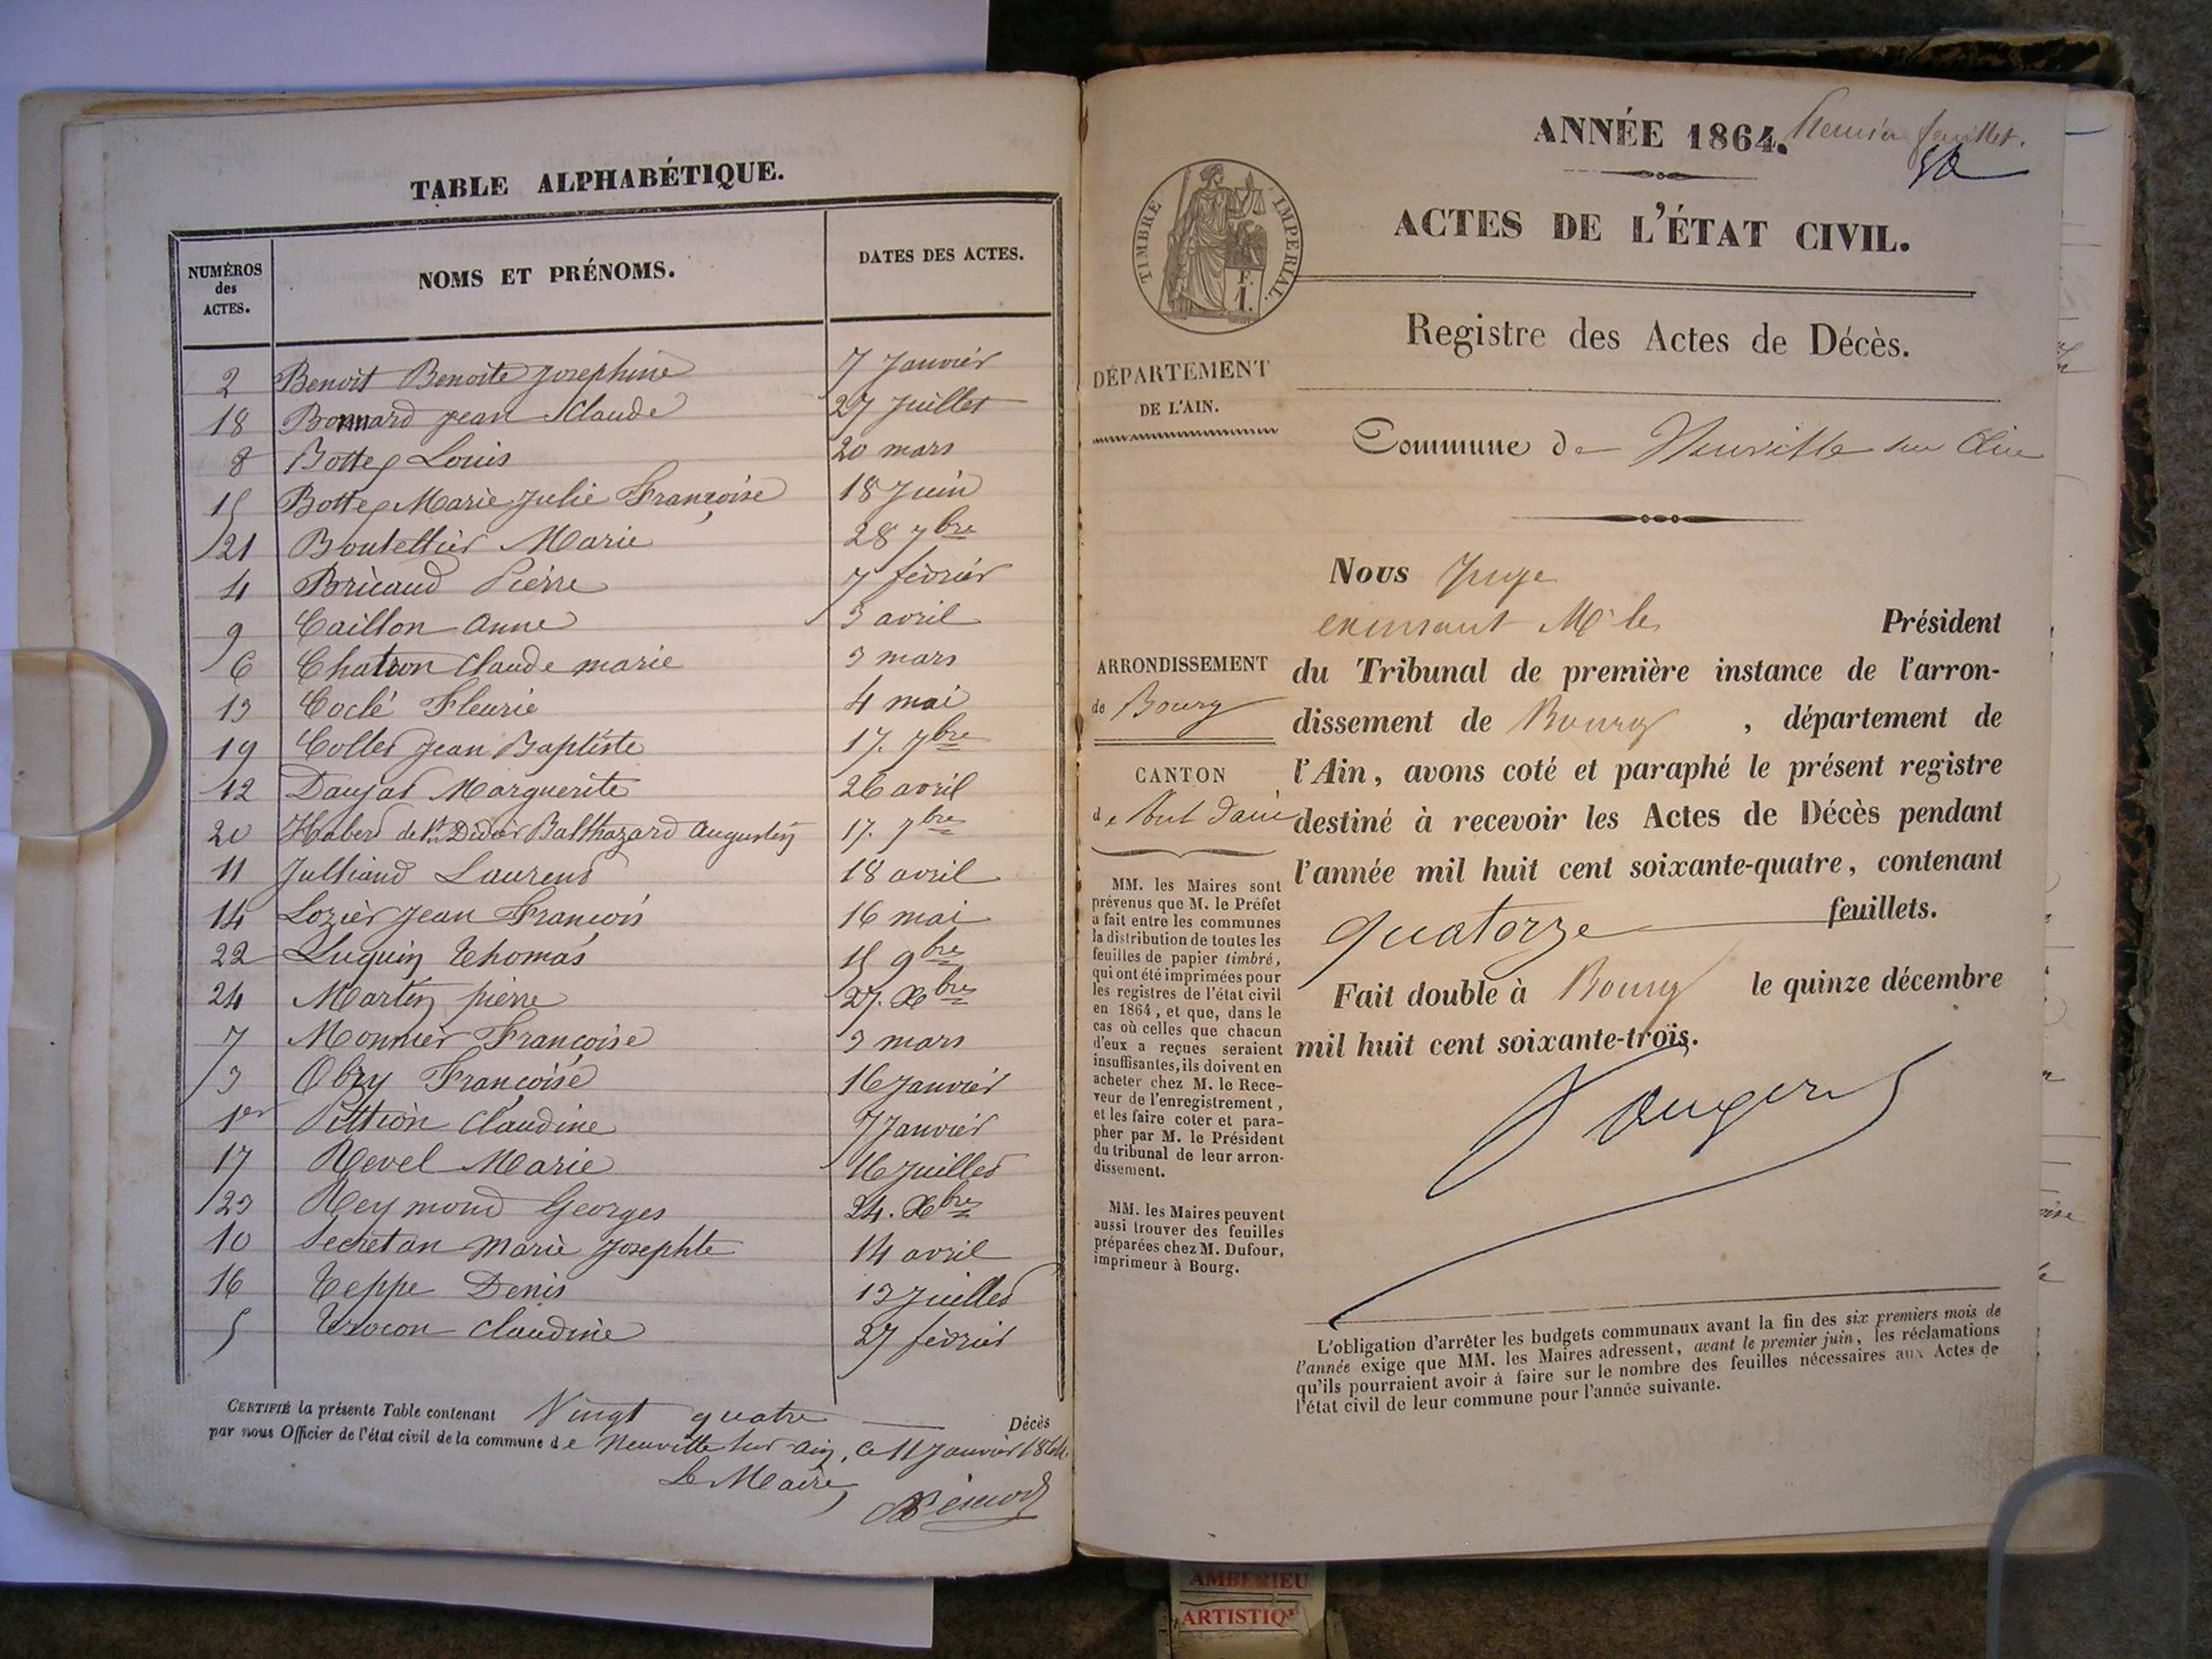 TABLE ALPHABÉTIQUE.
NUMÉROS des ACTES. NOMS ET PRÉNOMS. DATES DES ACTES.
2 Benoit Benoite Josephine 7 Janvier
18 Bonnard Jean Claude 27 Juillet
8 Bottex Louis 20 mars
15 Bottex Marie Julie Françoise 18 Juin
21 Boutellier Marie 28 7bre
4 Bricaud Pierre 7 février
9 Caillon Anne 3 avril
6 Chatron Claude marie 3 mars
13 Coclé Fleurie 4 mai
19 Collet Jean Baptiste 17. 7bre
12 Daujat Marguerite 26 avril
20 Habert de St Didier Balthazard Augustin 17. 7bre
11 Julliand Laurent 18 avril
14 Lozier Jean François 16 mai
22 Luquin Thomas 15 9bre
24 Martin pierre 27. Xbre
7 Monnier Françoise 3 mars
3 Obry Françoise 16 Janvier
1er Pittion Claudine 7 Janvier
17 Revel Marie 16 Juillet
23 Reymond Georges 24. Xbre
10 Secretan Marie Josephte 14 avril
16 Teppe Denis 13 Juillet
5 Trocon Claudine 27 février
CERTIFIÉ la présente Table contenant Vingt quatre Décès
par nous Officier de l'état civil de la commune de Neuville sur ain, ce 11 Janvier
Le Maire
ANNÉE 1864. Premier feuillet.
TIMBRE IMPÉRIAL.
ACTES DE L'ÉTAT CIVIL.
Registre des Actes de Décès.
DÉPARTEMENT
DE L'AIN.
Commune de Neuville sur Ain
Nous Juge
Mr le Président
ARRONDISSEMENT
de Bourg
CANTON
de Pont d'ain
du Tribunal de première instance de l'arron-
dissement de Bourg, département de
l'Ain, avons coté et paraphé le présent registre
destiné à recevoir les Actes de Décès pendant
l'année mil huit cent soixante-quatre, contenant
quatorze feuillets.
Fait double à Bourg le quinze décembre
mil huit cent soixante-trois.
MM. les Maires sont
prévenus que M. le Préfet
a fait entre les communes
la distribution de toutes les
feuilles de papier timbré,
qui ont été imprimées pour
les registres de l'état civil
en 1864, et que, dans le
cas où celles que chacun
d'eux a reçues seraient
insuffisantes, ils doivent en
acheter chez M. le Rece-
veur de l'enregistrement,
et les faire coter et para-
pher par M. le Président
du tribunal de leur arron-
dissement.
MM. les Maires peuvent
aussi trouver des feuilles
préparées chez M. Dufour,
imprimeur à Bourg.
L'obligation d'arrêter les budgets communaux avant la fin des six premiers mois de
l'année exige que MM. les Maires adressent, avant le premier juin, les réclamations
qu'ils pourraient avoir à faire sur le nombre des feuilles nécessaires aux Actes de
l'état civil de leur commune pour l'année suivante.
AMBERIEU
ARTISTIQ